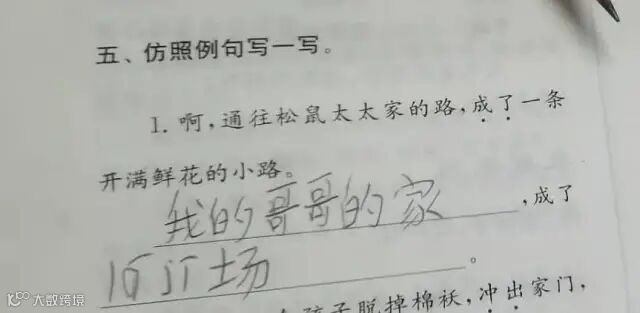 五、仿照例句写一写。
1. 啊,通往松鼠太太家的路,成了一条
开满鲜花的小路。
我的哥哥的家,成了
场。
孩子脱掉棉袄,冲出家门,
大数跨境